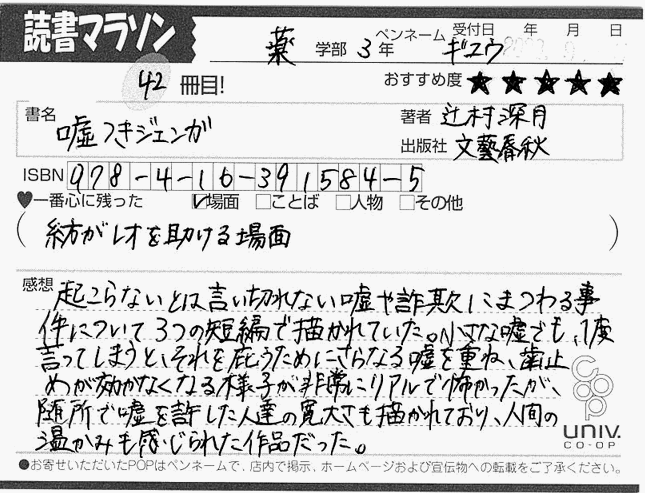 読書マラソン
薬 学部 3年 ペンネーム ギユウ 受付日 年 月 日
42 冊目!
おすすめ度 ★★★★★
書名 嘘つきジェンガ
著者 辻村深月
出版社 文藝春秋
ISBN 978-4-16-391584-5
♥一番心に残った ☑場面 □ことば □人物 □その他
(紡がレオを助ける場面)
感想
起こらないとは言い切れない嘘や詐欺にまつわる事
件について3つの短編で描かれていた。小さな嘘でも、1度
言ってしまうと、それを庇うためにさらなる嘘を重ね、歯止
めが効かなくなる様子が非常にリアルで怖かったが、
随所で嘘を許した人達の寛大さも描かれており、人間の
温かみも感じられた作品だった。
coop
univ.
CO-OP
●お寄せいただいたPOPはペンネームで、店内で掲示、ホームページおよび宣伝物への転載をご了承ください。